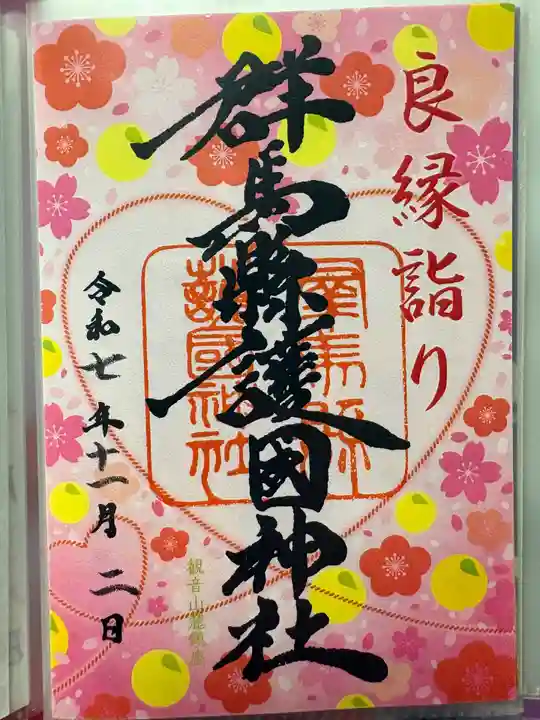 良縁詣り
群馬縣護國神社
令和七年十一月二日
群馬縣護國神社